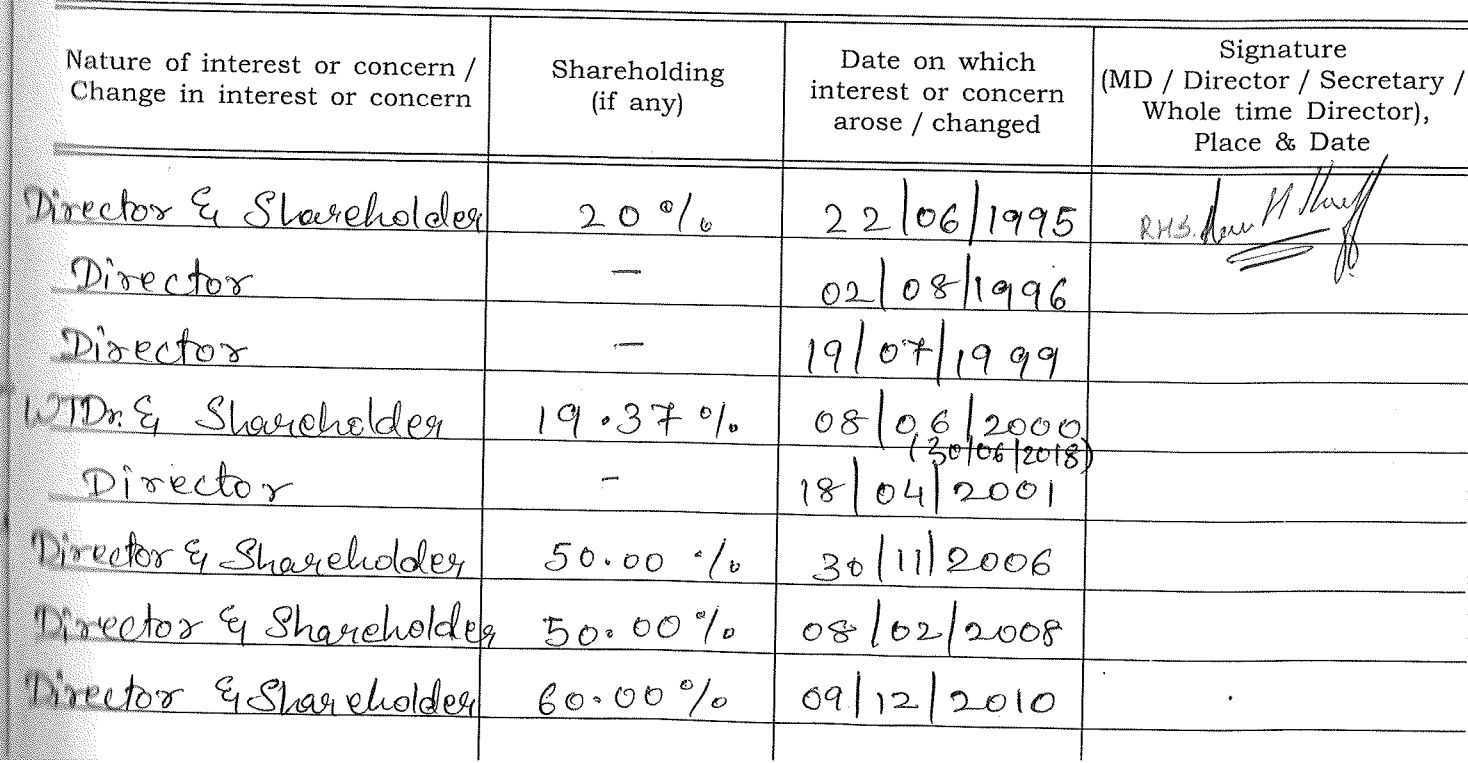 Nature of interest or concern / Change in interest or concern
Shareholding (if any)
Date on which interest or concern arose / changed
Signature (MD / Director / Secretary / Whole time Director), Place & Date
Director & Shareholder 20% 22/06/1995 RHS.
Director — 02/08/1996
Director — 19/07/1999
WTDr. & Shareholder 19.37% 08/06/2000
(30/06/2018)
Director - 18/04/2001
Director & Shareholder 50.00% 30/11/2006
Director & Shareholder 50.00% 08/02/2008
Director & Shareholder 60.00% 09/12/2010